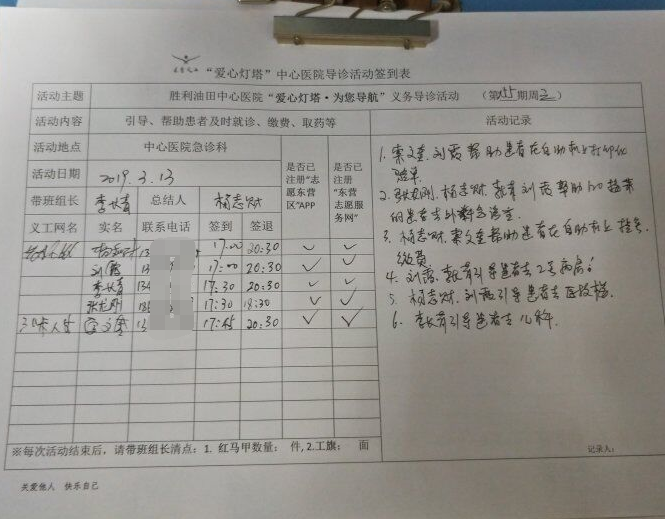 “爱心灯塔”中心医院导诊活动签到表
活动主题 胜利油田中心医院“爱心灯塔·为您导航”义务导诊活动 (第155期周三)
活动内容 引导、帮助患者及时就诊、缴费、取药等 活动记录
活动地点 中心医院急诊科 是否已注册“志愿东营区”APP 是否已注册“东营志愿服务网”
活动日期 2019.3.13
带班组长 李长青 总结人 杨志财
义工网名 实名 联系电话 签到 签退
13 17:00 20:30 ✓ ✓
刘霞 13 17:00 20:30 ✓ ✓
李长青 134 17:30 20:30 ✓ ✓
17:30 18:30 ✓ ✓
文奎 13 17:45 20:30 ✓ ✓
1. 文奎、刘霞帮助患者在自助机上打印化验单
2. 杨志财、李青、刘霞帮助120
3. 杨志财、文奎帮助患者在自助机上挂号、缴费
4. 刘霞、李长青引导患者去2号病房
5. 杨志财、刘霞引导患者去
6. 李长青引导患者去儿科.
※每次活动结束后，请带班组长清点：1. 红马甲数量： 件, 2.工旗： 面
记录人：
关爱他人 快乐自己